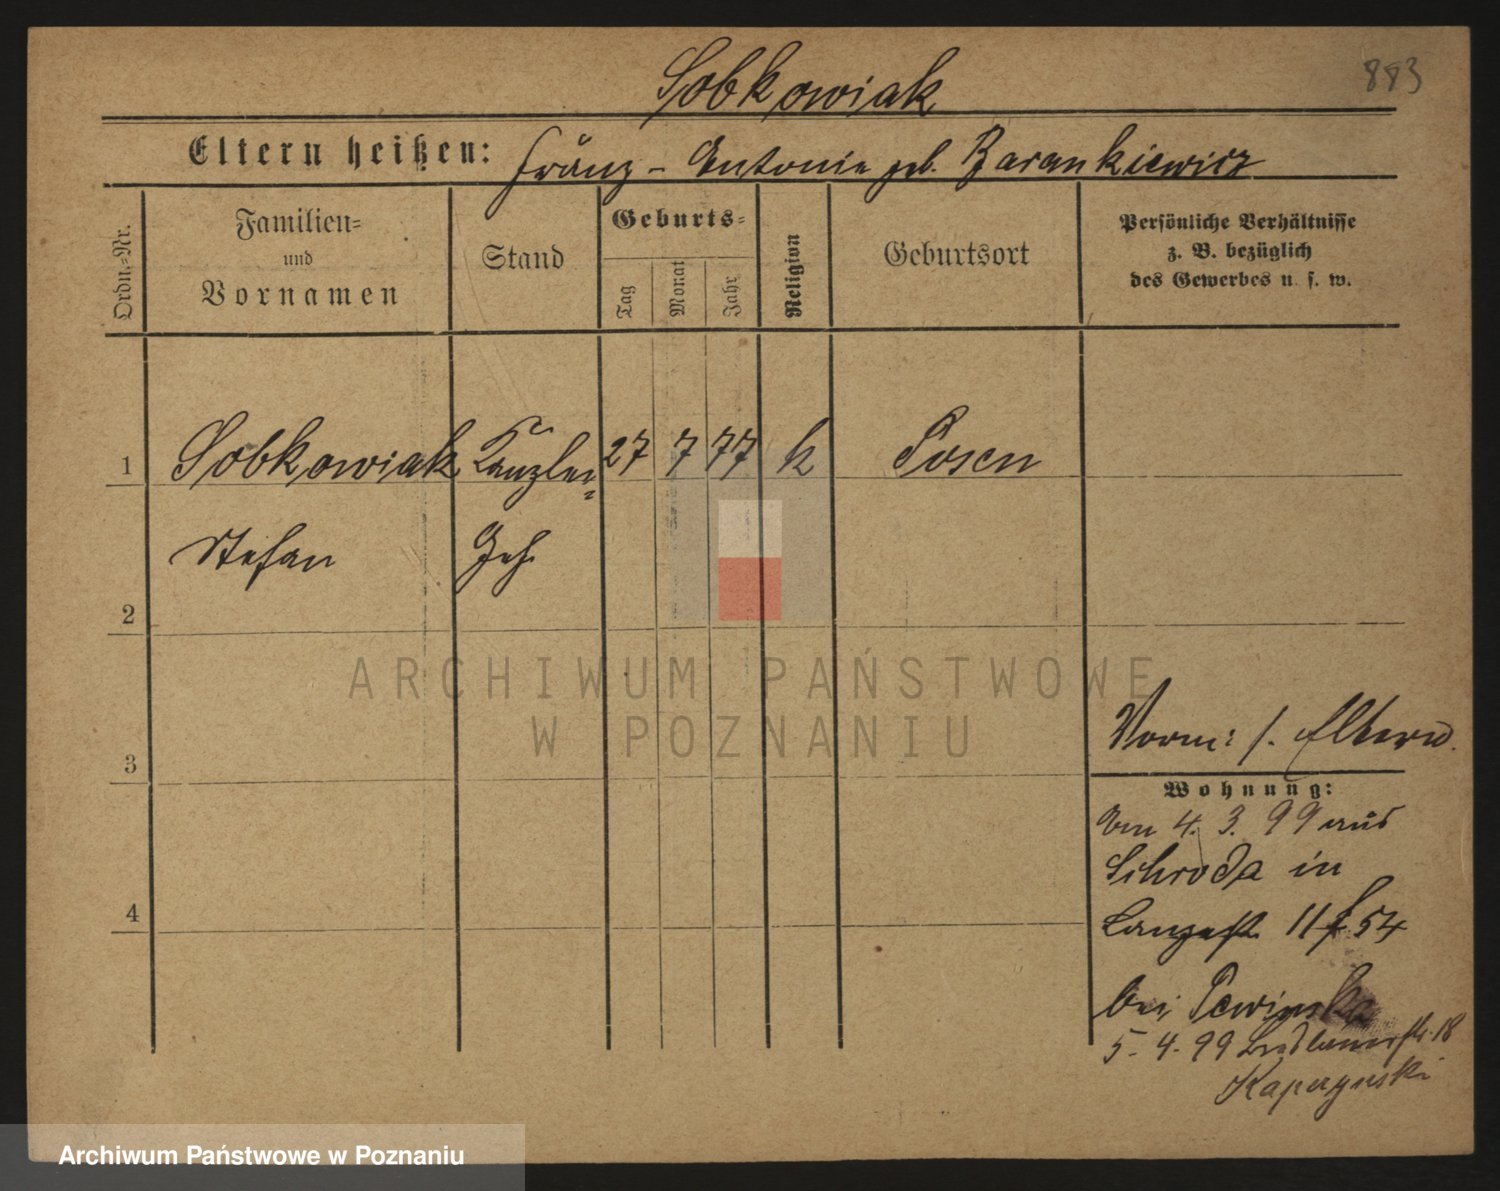 Sobkowiak
883
Eltern heißen: Franz - Antonie geb. Barankiewicz
Ordn.-Nr.
Familien-
und
Vornamen
Stand
Geburts-
Tag
Monat
Jahr
Religion
Geburtsort
Persönliche Verhältnisse
z. B. bezüglich
des Gewerbes u. s. w.
1 Sobkowiak Kanzlei- 27 7 77 k Posen
Stefan Geh.
2
ARCHIWUM PAŃSTWOWE
W POZNANIU
3
Vorm: s. Eltern
Wohnung:
Am 4. 3. 99 aus
Schroda in
4
Langestr. 11 54
bei
5. 4. 99 18
Kaperzynski
Archiwum Państwowe w Poznaniu